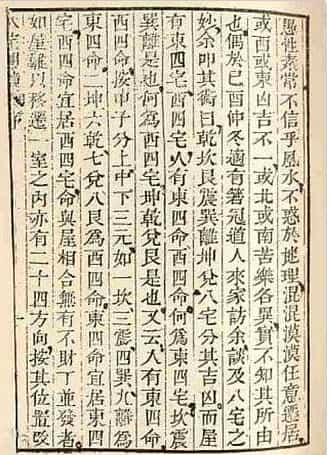 愚性素常不信乎風水不惑於地理混混漠漠任意遷居
或西或東凶吉不一或北或南苦樂各異實不知其所由
也偶於己酉仲冬適有箬冠道人來家訪余談及八宅之
妙余叩其術曰乾坎艮震巽離坤兌八宅分其吉凶而屋
有東四宅西四宅人有東四命西四命何爲東四宅坎震
巽離是也何爲西四宅坤乾兌艮是也又云人有東四命
西四命按甲子分上中下三元如一坎三震四巽九離爲
東四命二坤六乾七兌八艮爲西四命東四命宜居東四
宅西四命宜居西四宅命與屋相合無有不財丁並發者
如屋難以移遷一室之內亦有二十四方向按其位置毁